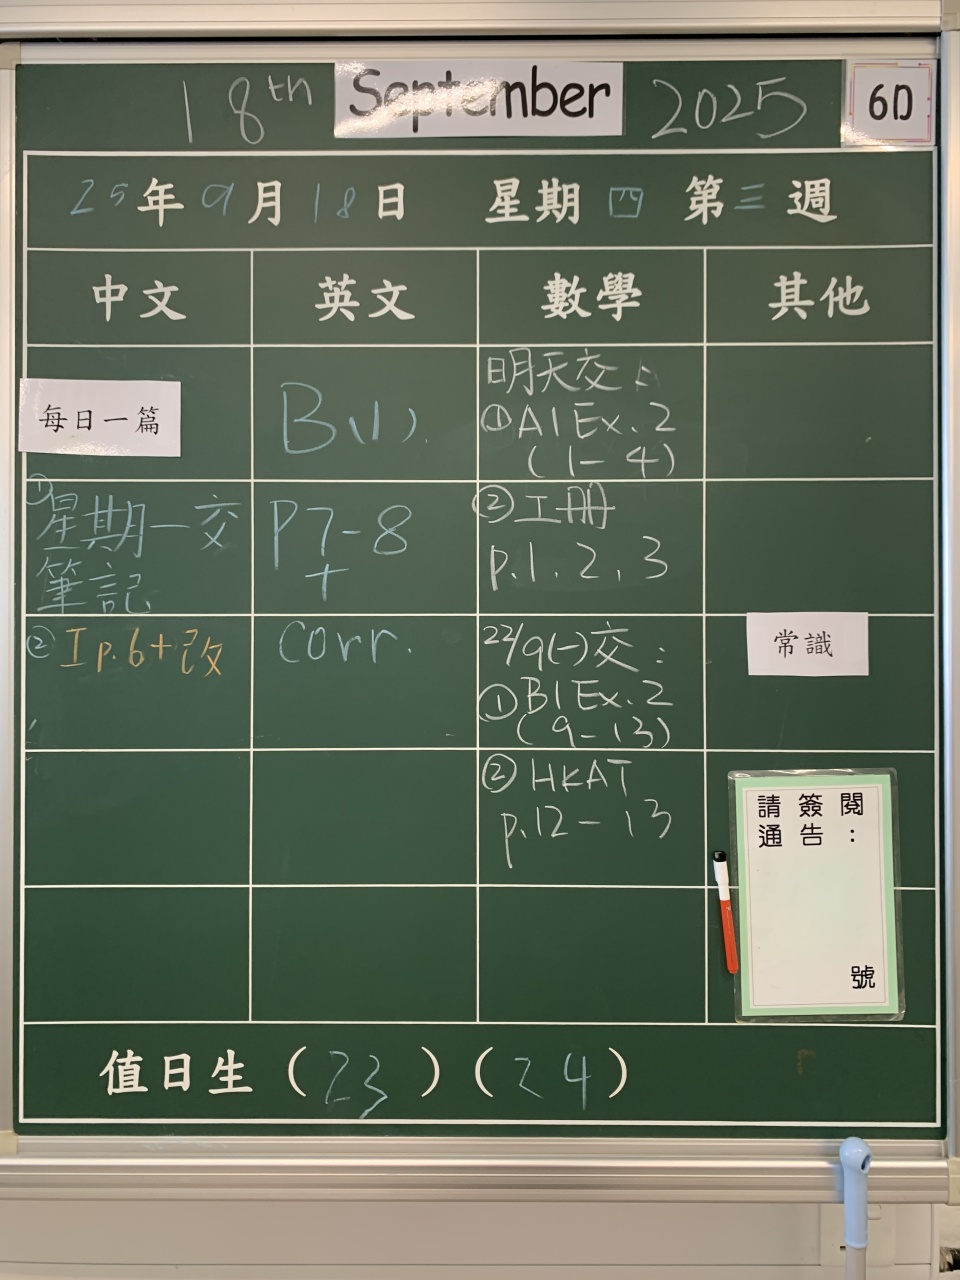 18th September 2025 6D
25年9月18日 星期四 第三週
中文 英文 數學 其他
每日一篇
①星期一交
筆記
②I p.6+改
B(1).
P7-8
+
corr.
明天交:
①A1 Ex.2
(1-4)
②工冊
p.1, 2, 3
22/9(一)交:
①B1 Ex.2
(9-13)
②HKAT
p.12-13
常識
請簽閱
通告:
號
值日生(23)(24)